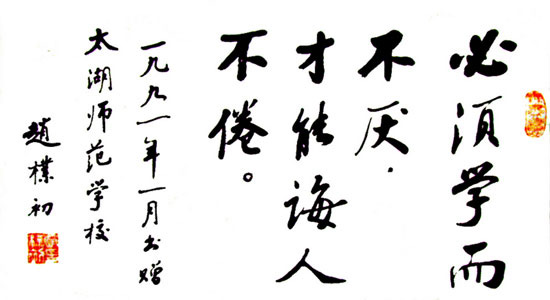 必须学而
不厌.
才能诲人
不倦。
一九九一年一月书赠
太湖师范学校
趙樸初